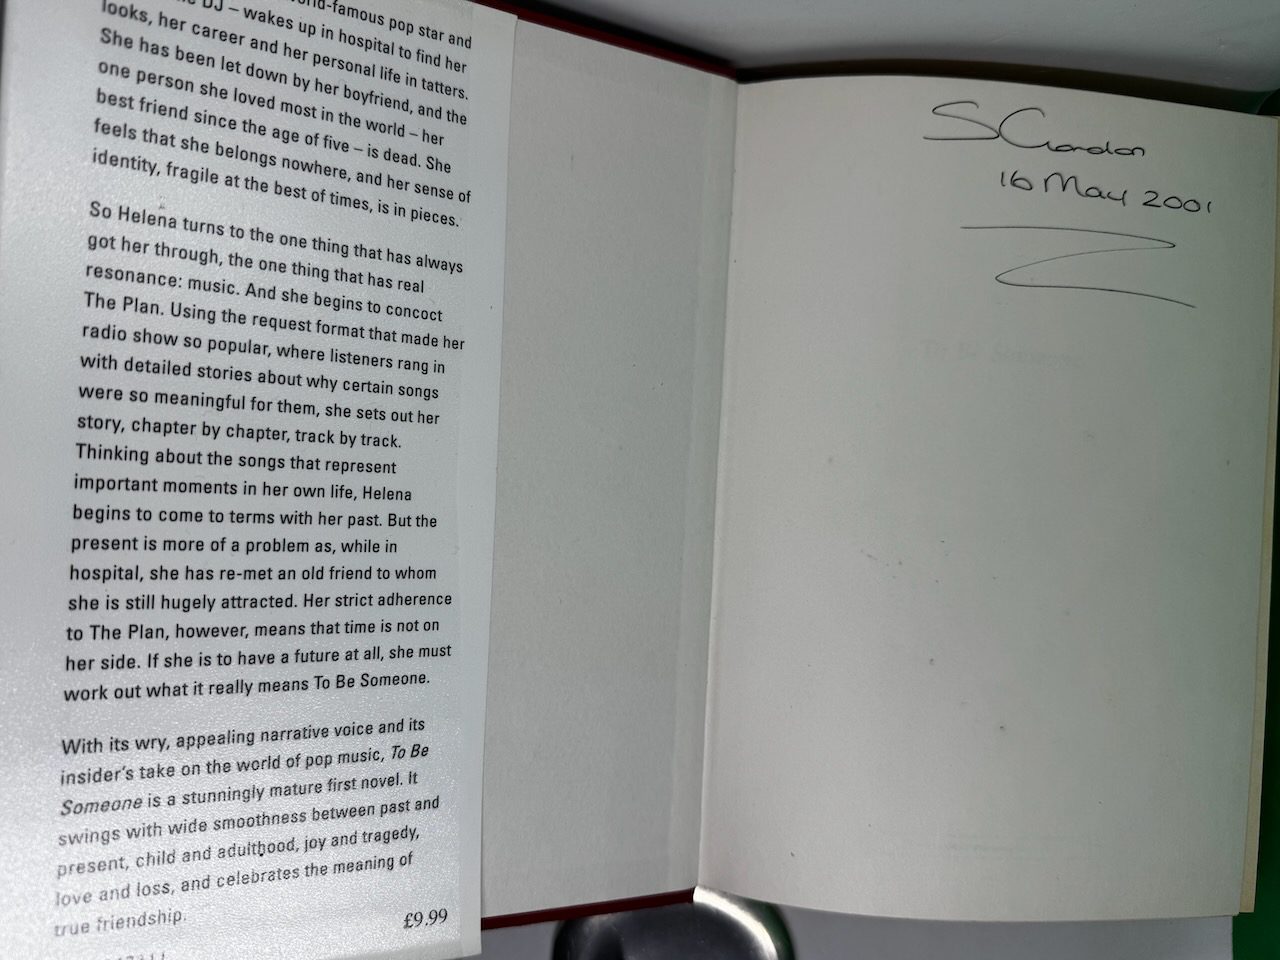 DJ – wakes up in hospital to find her
looks, her career and her personal life in tatters.
She has been let down by her boyfriend, and the
one person she loved most in the world – her
best friend since the age of five – is dead. She
feels that she belongs nowhere, and her sense of
identity, fragile at the best of times, is in pieces.
So Helena turns to the one thing that has always
got her through, the one thing that has real
resonance: music. And she begins to concoct
The Plan. Using the request format that made her
radio show so popular, where listeners rang in
with detailed stories about why certain songs
were so meaningful for them, she sets out her
story, chapter by chapter, track by track.
Thinking about the songs that represent
important moments in her own life, Helena
begins to come to terms with her past. But the
present is more of a problem as, while in
hospital, she has re-met an old friend to whom
she is still hugely attracted. Her strict adherence
to The Plan, however, means that time is not on
her side. If she is to have a future at all, she must
work out what it really means To Be Someone.
With its wry, appealing narrative voice and its
insider's take on the world of pop music, To Be
Someone is a stunningly mature first novel. It
swings with wide smoothness between past and
present, child and adulthood, joy and tragedy,
love and loss, and celebrates the meaning of
true friendship.
£9.99
16 May 2001